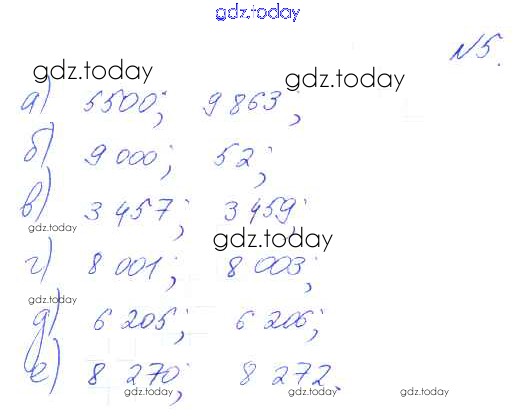 gdz.today
N5.
gdz.today gdz.today
а) 5500; 9 863;
б) 9 000; 52;
в) 3 457; 3 459;
gdz.today gdz.today
г) 8 001; 8 003;
gdz.today
д) 6 205; 6 206;
е) 8 270; 8 272.
gdz.today gdz.today gdz.today